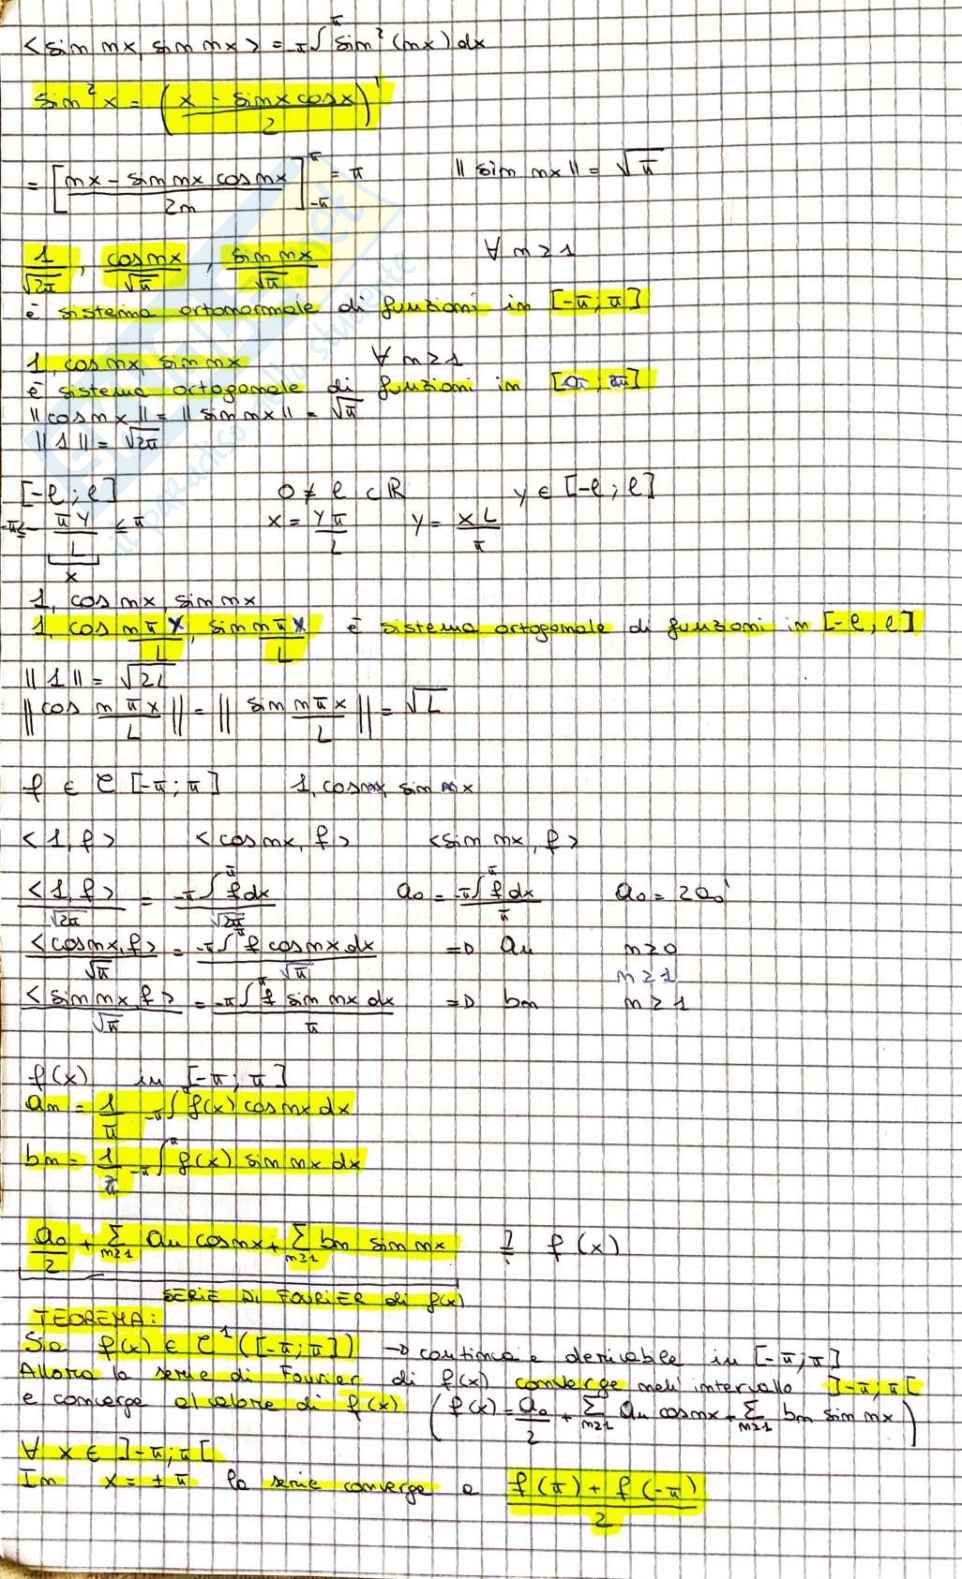 <sin mx, sin mx> = -π∫^π sin²(mx) dx
sin² x = ((x - sin x cos x)/2)'
= [(mx - sin mx cos mx)/2m]_{-π}^{π} = π    ||sin mx|| = √π
1/√2π, cos mx/√π, sin mx/√π    ∀ m ≥ 1
è sistema ortonormale di funzioni in [-π; π]
1, cos mx, sin mx    ∀ m ≥ 1
è sistema ortogonale di funzioni in
||cos mx|| = ||sin mx|| = √π
||1|| = √2π
[-l; l]    0 ≠ l ⊂ R    y ∈ [-l; l]
-π ≤ πy/L ≤ π    x = yπ/L    y = xL/π
x
1, cos mx, sin mx
1, cos mπx/L, sin mπx/L è sistema ortogonale di funzioni in [-l, l]
||1|| = √2L
||cos mπx/L|| = ||sin mπx/L|| = √L
f ∈ C [-π; π]    1, cos mx, sin mx
<1, f>    <cos mx, f>    <sin mx, f>
<1, f>/√2π = -π∫^π f dx/√2π    a₀ = -π∫^π f dx/π    a₀ = 2a₀'
<cos mx, f>/√π = -π∫^π f cos mx dx/√π    => an    m ≥ 0
m ≥ 1
<sin mx, f>/√π = -π∫^π f sin mx dx/π    => bm    m ≥ 1
f(x) in [-π; π]
am = 1/π -π∫^π f(x) cos mx dx
bm = 1/π -π∫^π f(x) sin mx dx
a₀/2 + Σ_{m≥1} an cos mx + Σ_{m≥1} bm sin mx    ?    f(x)
SERIE DI FOURIER di f(x)
TEOREMA:
Sia f(x) ∈ C¹([-π; π]) → continua e derivabile in [-π; π]
Allora la serie di Fourier di f(x) converge nell'intervallo ]-π; π[
e converge al valore di f(x) (f(x) = a₀/2 + Σ_{m≥1} an cos mx + Σ_{m≥1} bm sin mx)
∀ x ∈ ]-π; π[
Im x = ±π la serie converge a (f(π) + f(-π))/2